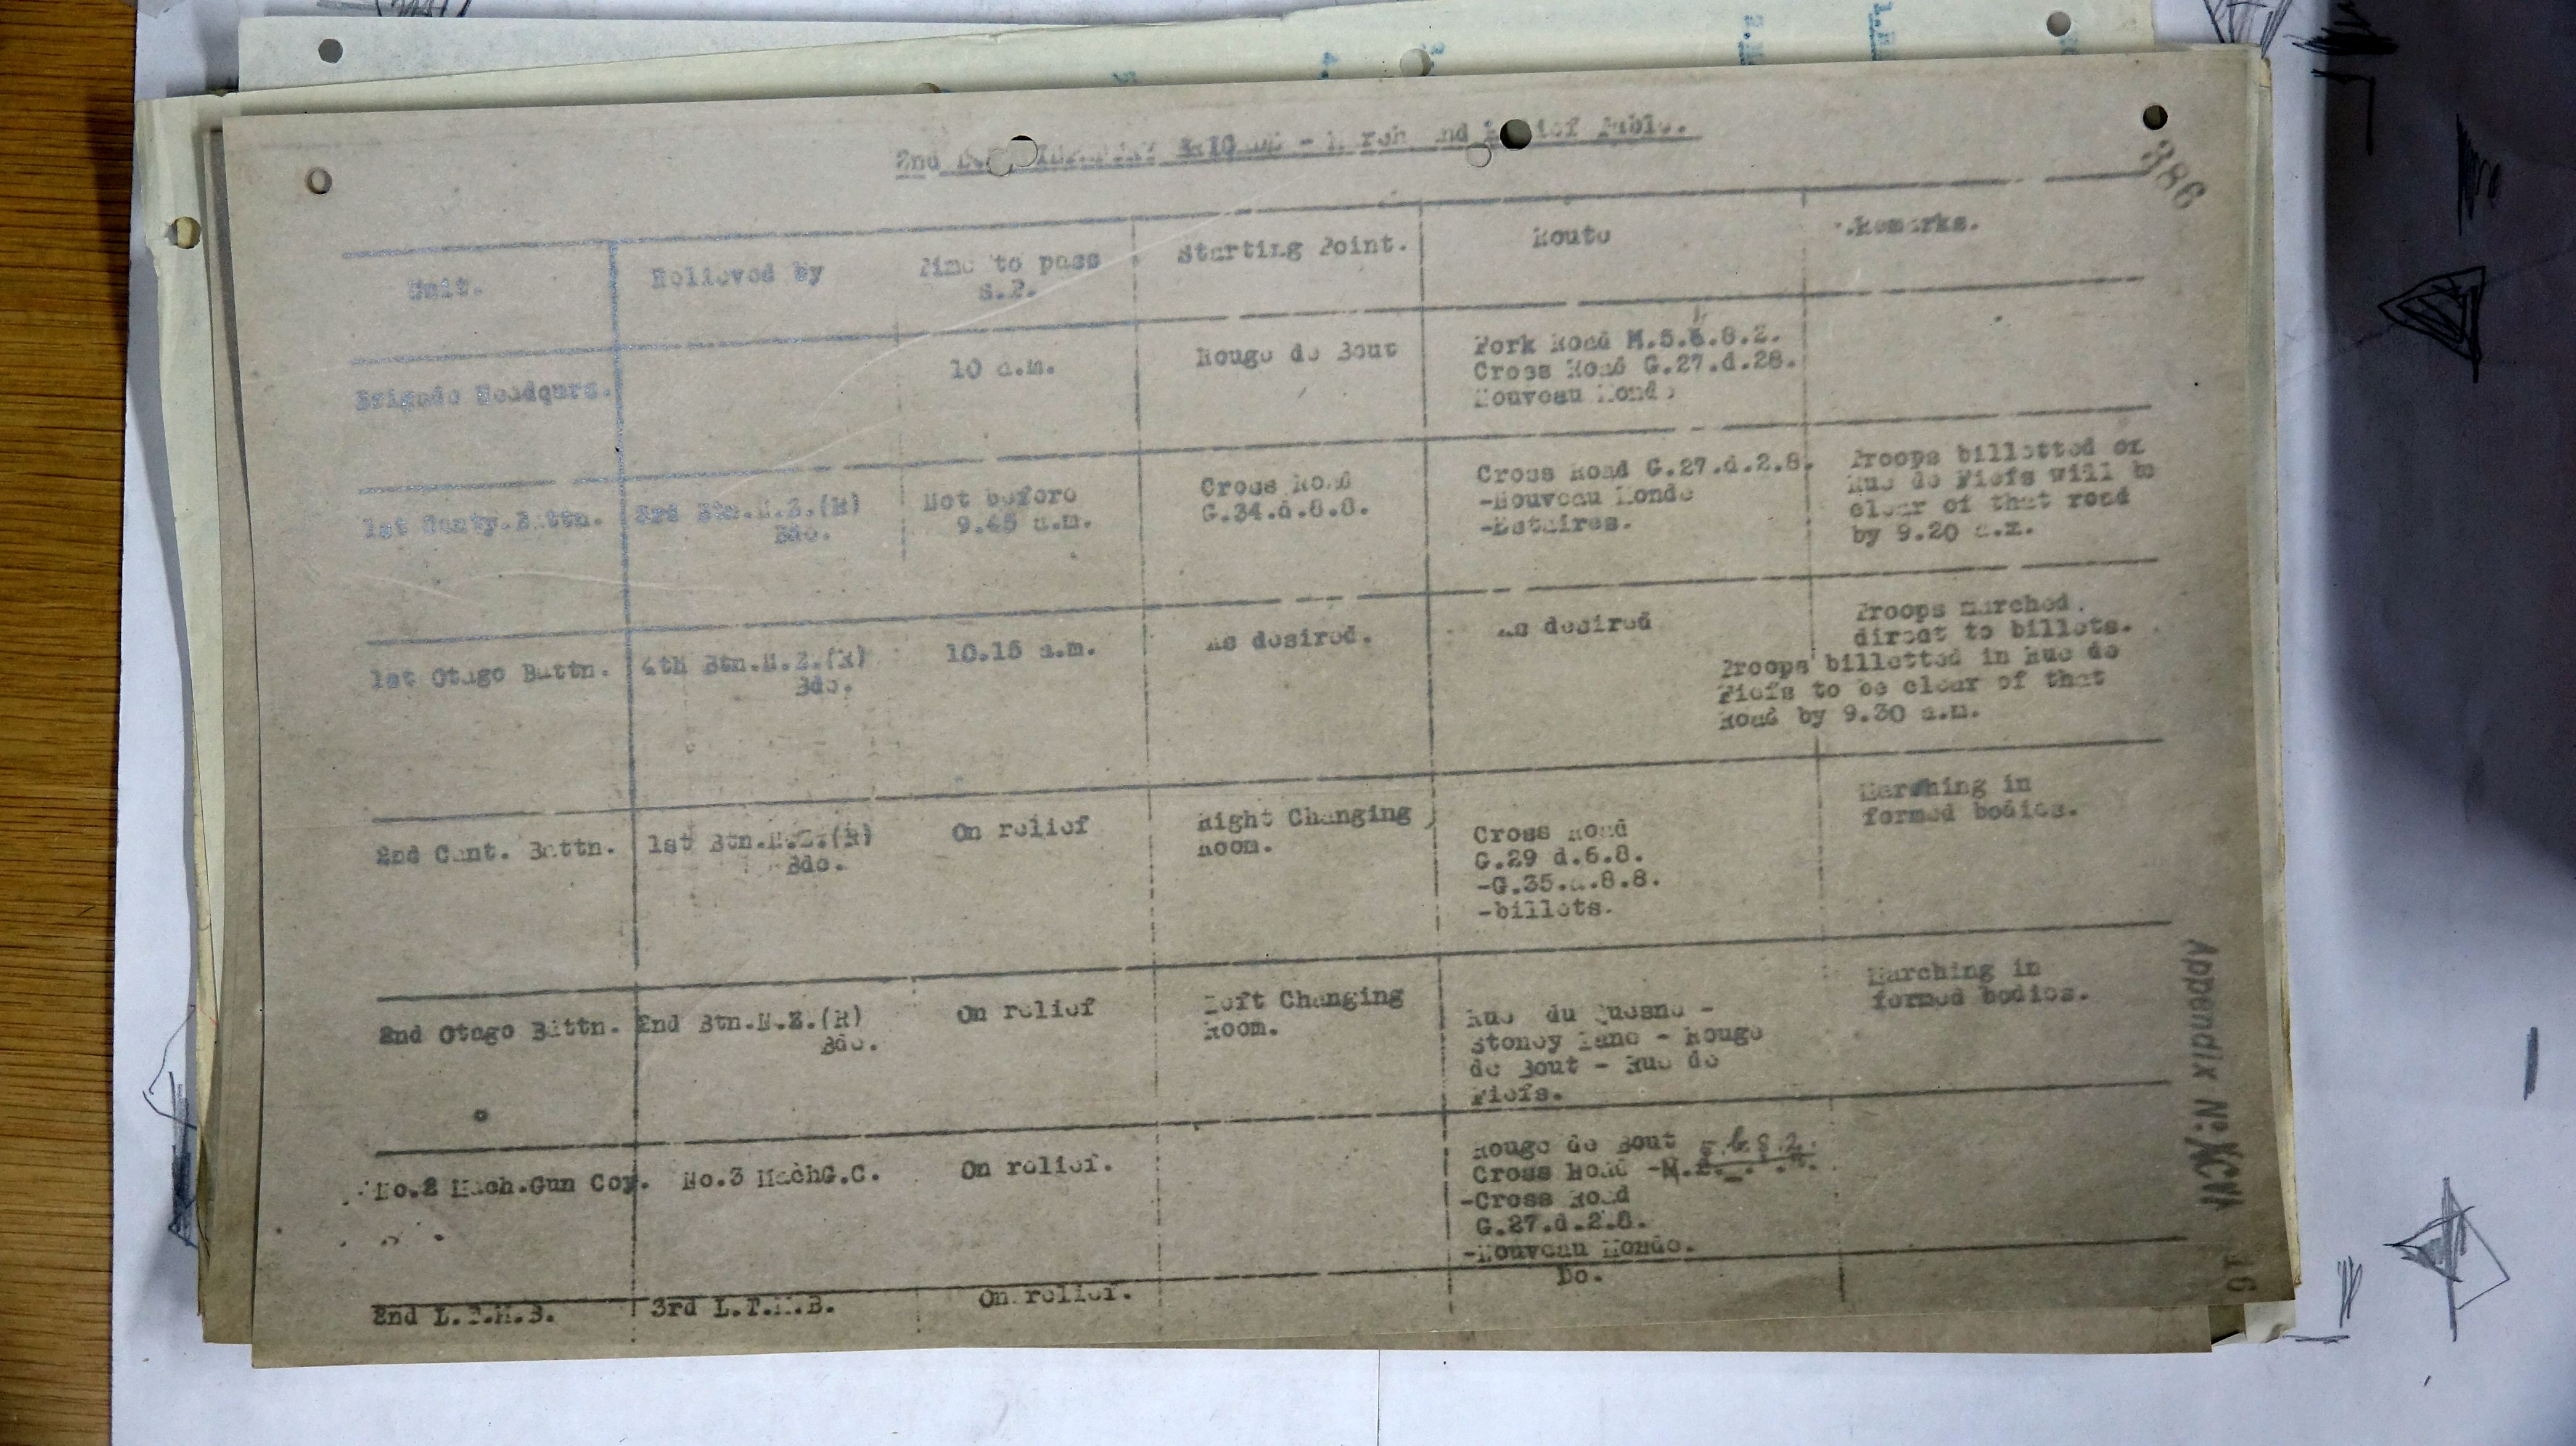 2nd N.Z. INFANTRY BRIGADE - March and Relief Table.
386
Unit. Relieved by Time to pass Starting Point. Route Remarks.
S.P.
Brigade Headqurs. 10 a.m. Rouge de Bout Fork Road M.5.b.8.2.
Cross Road G.27.d.28.
Nouveau Monde
1st Canty.Battn. 3rd Btn.N.Z.(R) Not before Cross Road Cross Road G.27.d.2.8. Troops billetted on
Bde. 9.45 a.m. G.34.d.8.8. -Nouveau Monde Rue de Fiefs will be
-Estaires. clear of that road
by 9.20 a.m.
1st Otago Battn. 4th Btn.N.Z.(R) 10.15 a.m. As desired. As desired Troops marched
Bde. direct to billets.
Troops billetted in Rue de
Fiefs to be clear of that
Road by 9.30 a.m.
2nd Cant. Battn. 1st Btn.N.Z.(R) On relief Right Changing Cross Road Marching in
Bde. Room. G.29 d.6.8. formed bodies.
-G.35.a.8.8.
-billets.
2nd Otago Battn. 2nd Btn.N.Z.(R) On relief Left Changing Rue du Quesne - Marching in
Bde. Room. Stoney Lane - Rouge formed bodies.
de Bout - Rue de
Fiefs.
No.2 Mach.Gun Coy. No.3 MachG.C. On relief. Rouge de Bout
Cross Road -M.5.b.8.2.
-Cross Road
G.27.d.2.8.
-Nouveau Monde.
2nd L.T.M.B. 3rd L.T.M.B. On relief. Do.
Appendix No.